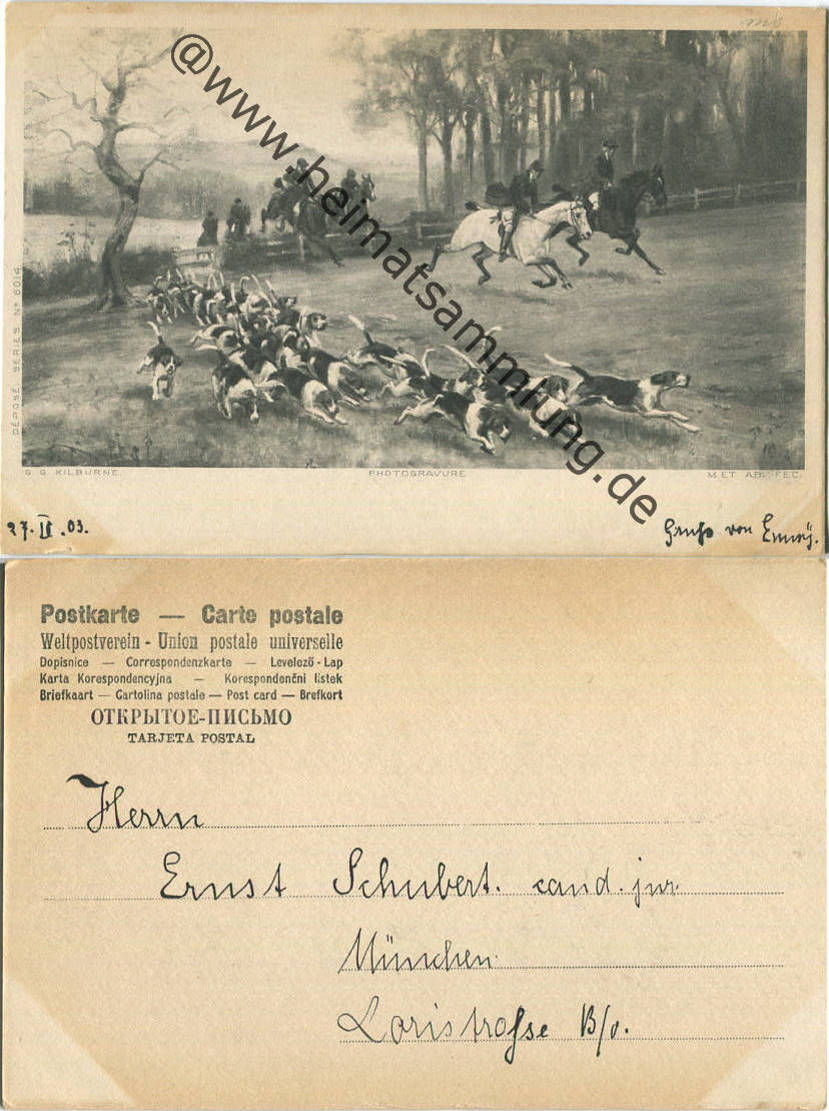 ms
@www.heimatsammlung.de
DÉPOSÉ. SERIES Nº 6014
G. G. KILBURNE. PHOTOGRAVURE M. ET. AB. FEC.
27. II. 03. Gruss von Emmy.
Postkarte — Carte postale
Weltpostverein - Union postale universelle
Dopisnice — Correspondenzkarte — Levelező-Lap
Karta Korespondencyjna — Korespondenčni listek
Briefkaart — Cartolina postale — Post card — Brefkort
ОТКРЫТОЕ-ПИСЬМО
TARJETA POSTAL
Herrn
Ernst Schubert. cand. jur.
München
Loristrasse